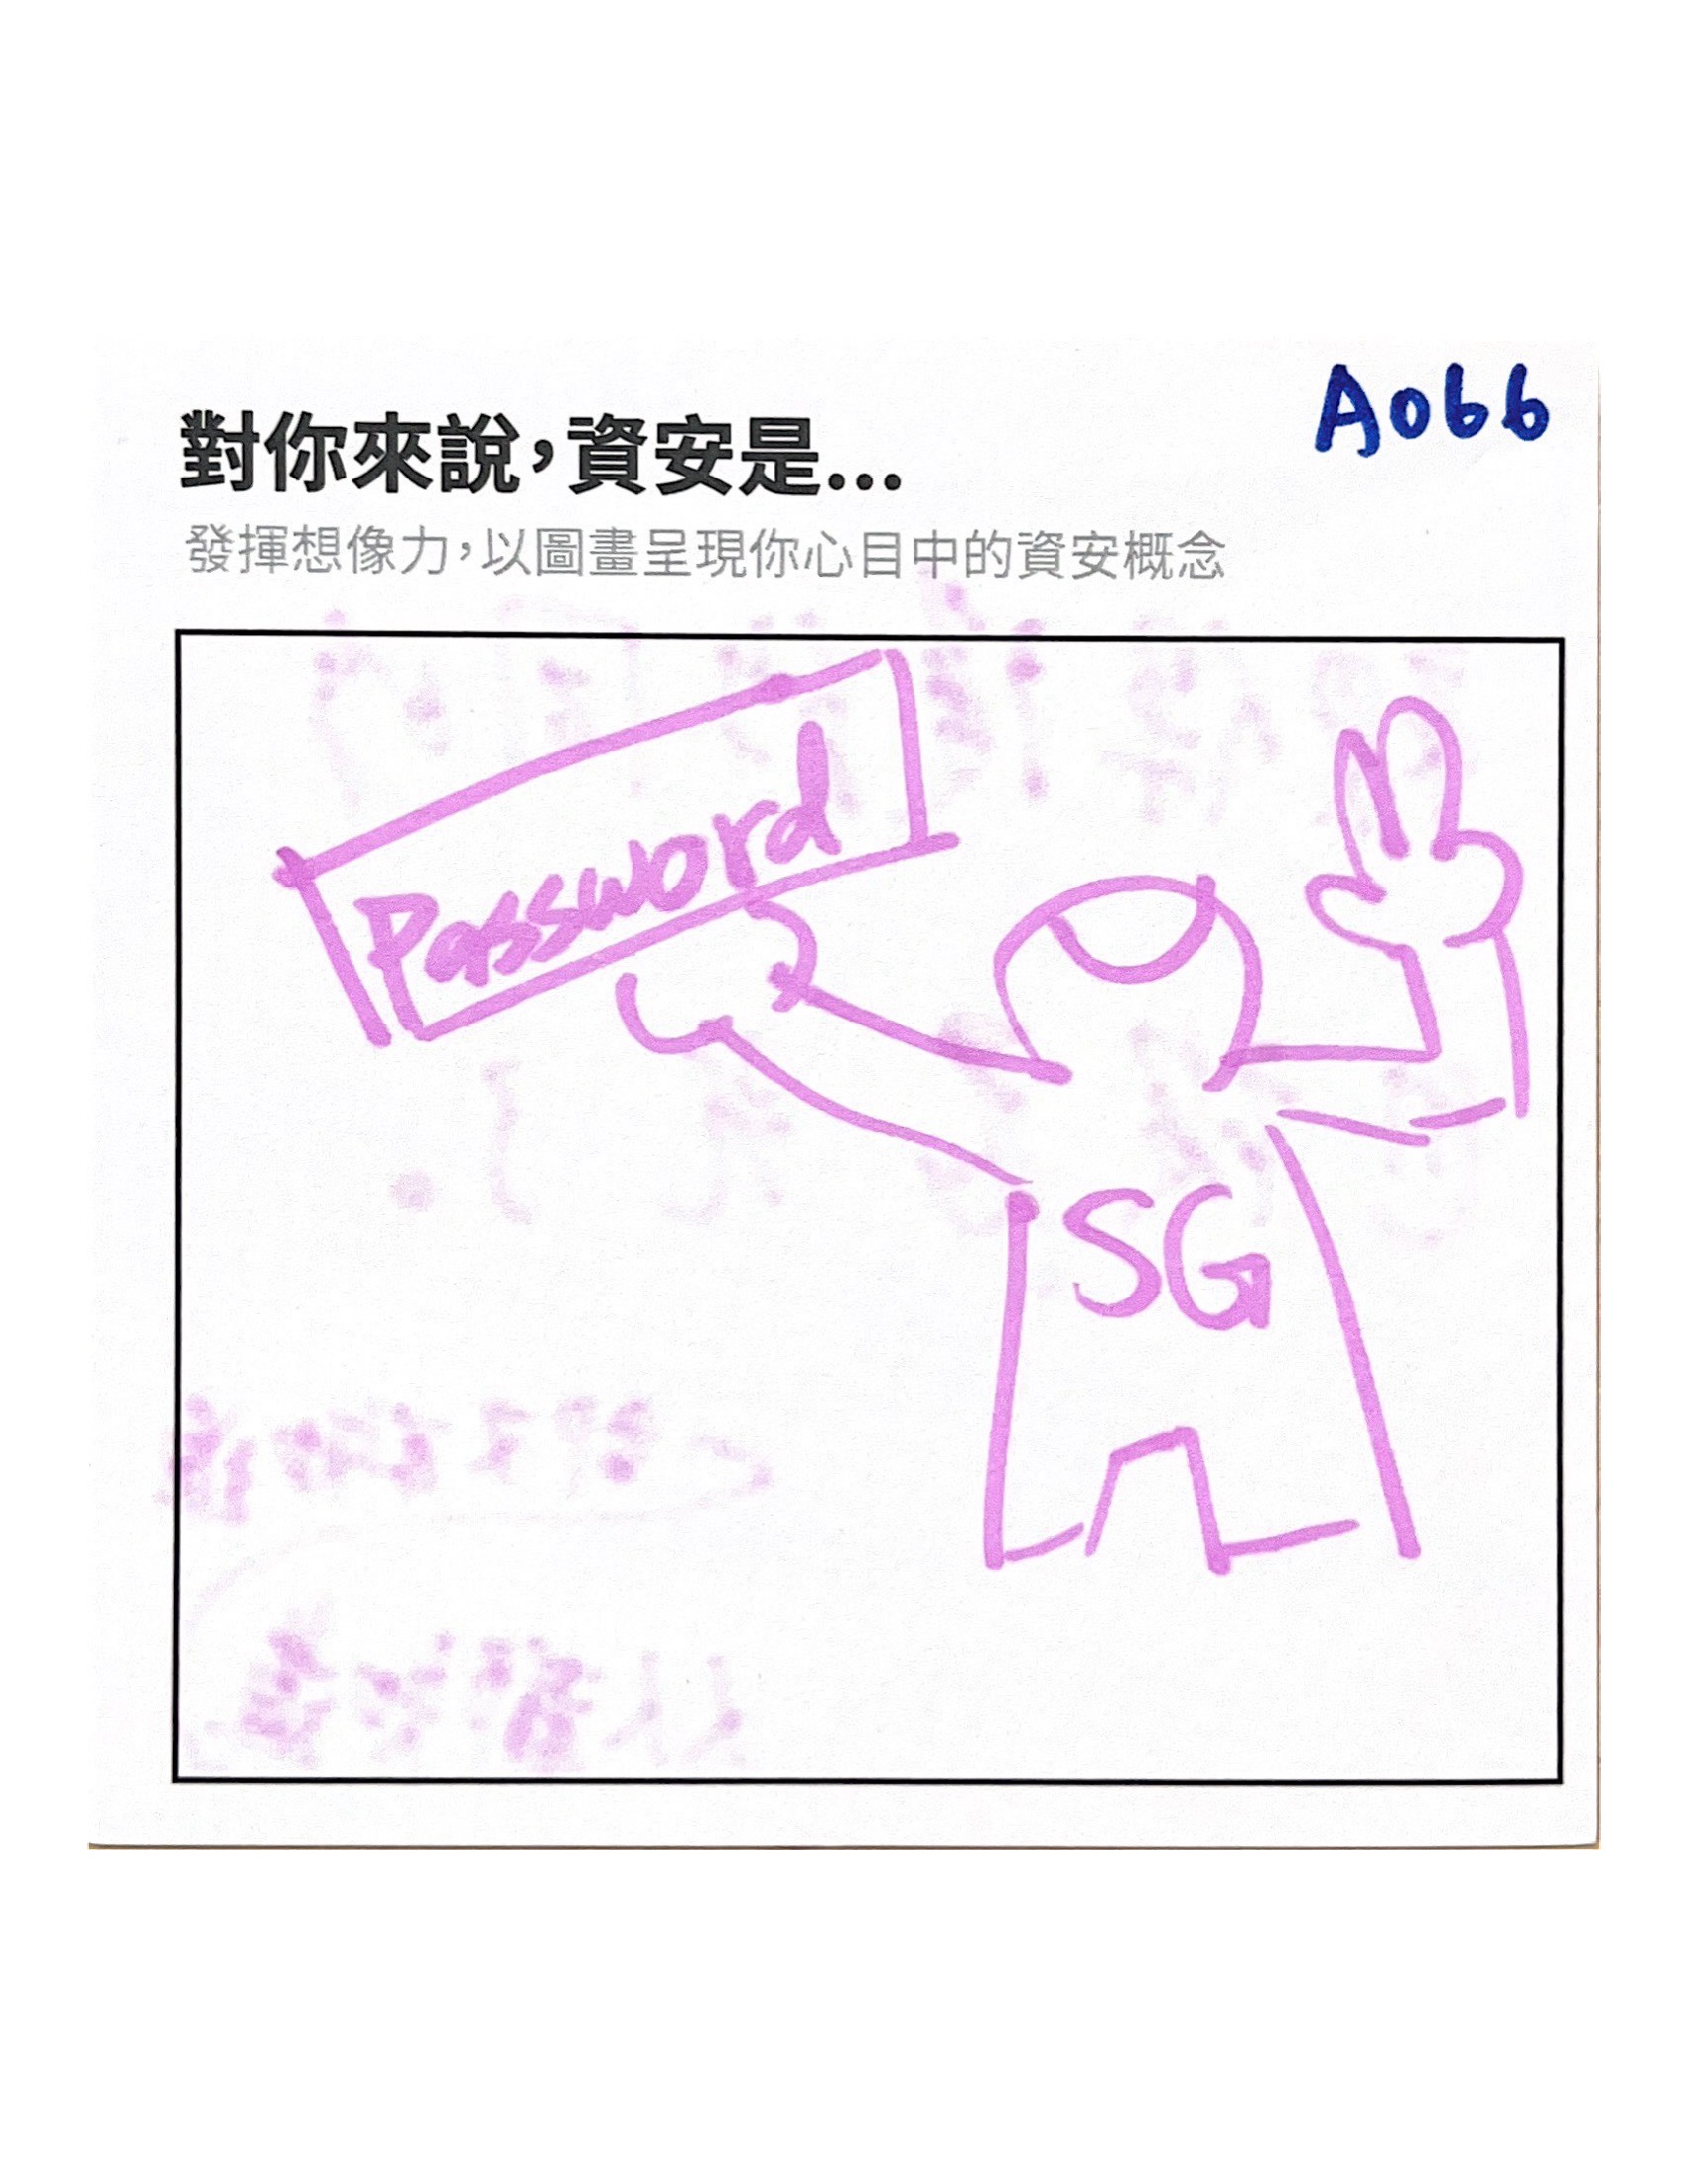 A066
對你來說，資安是...
發揮想像力，以圖畫呈現你心目中的資安概念
Password
SG